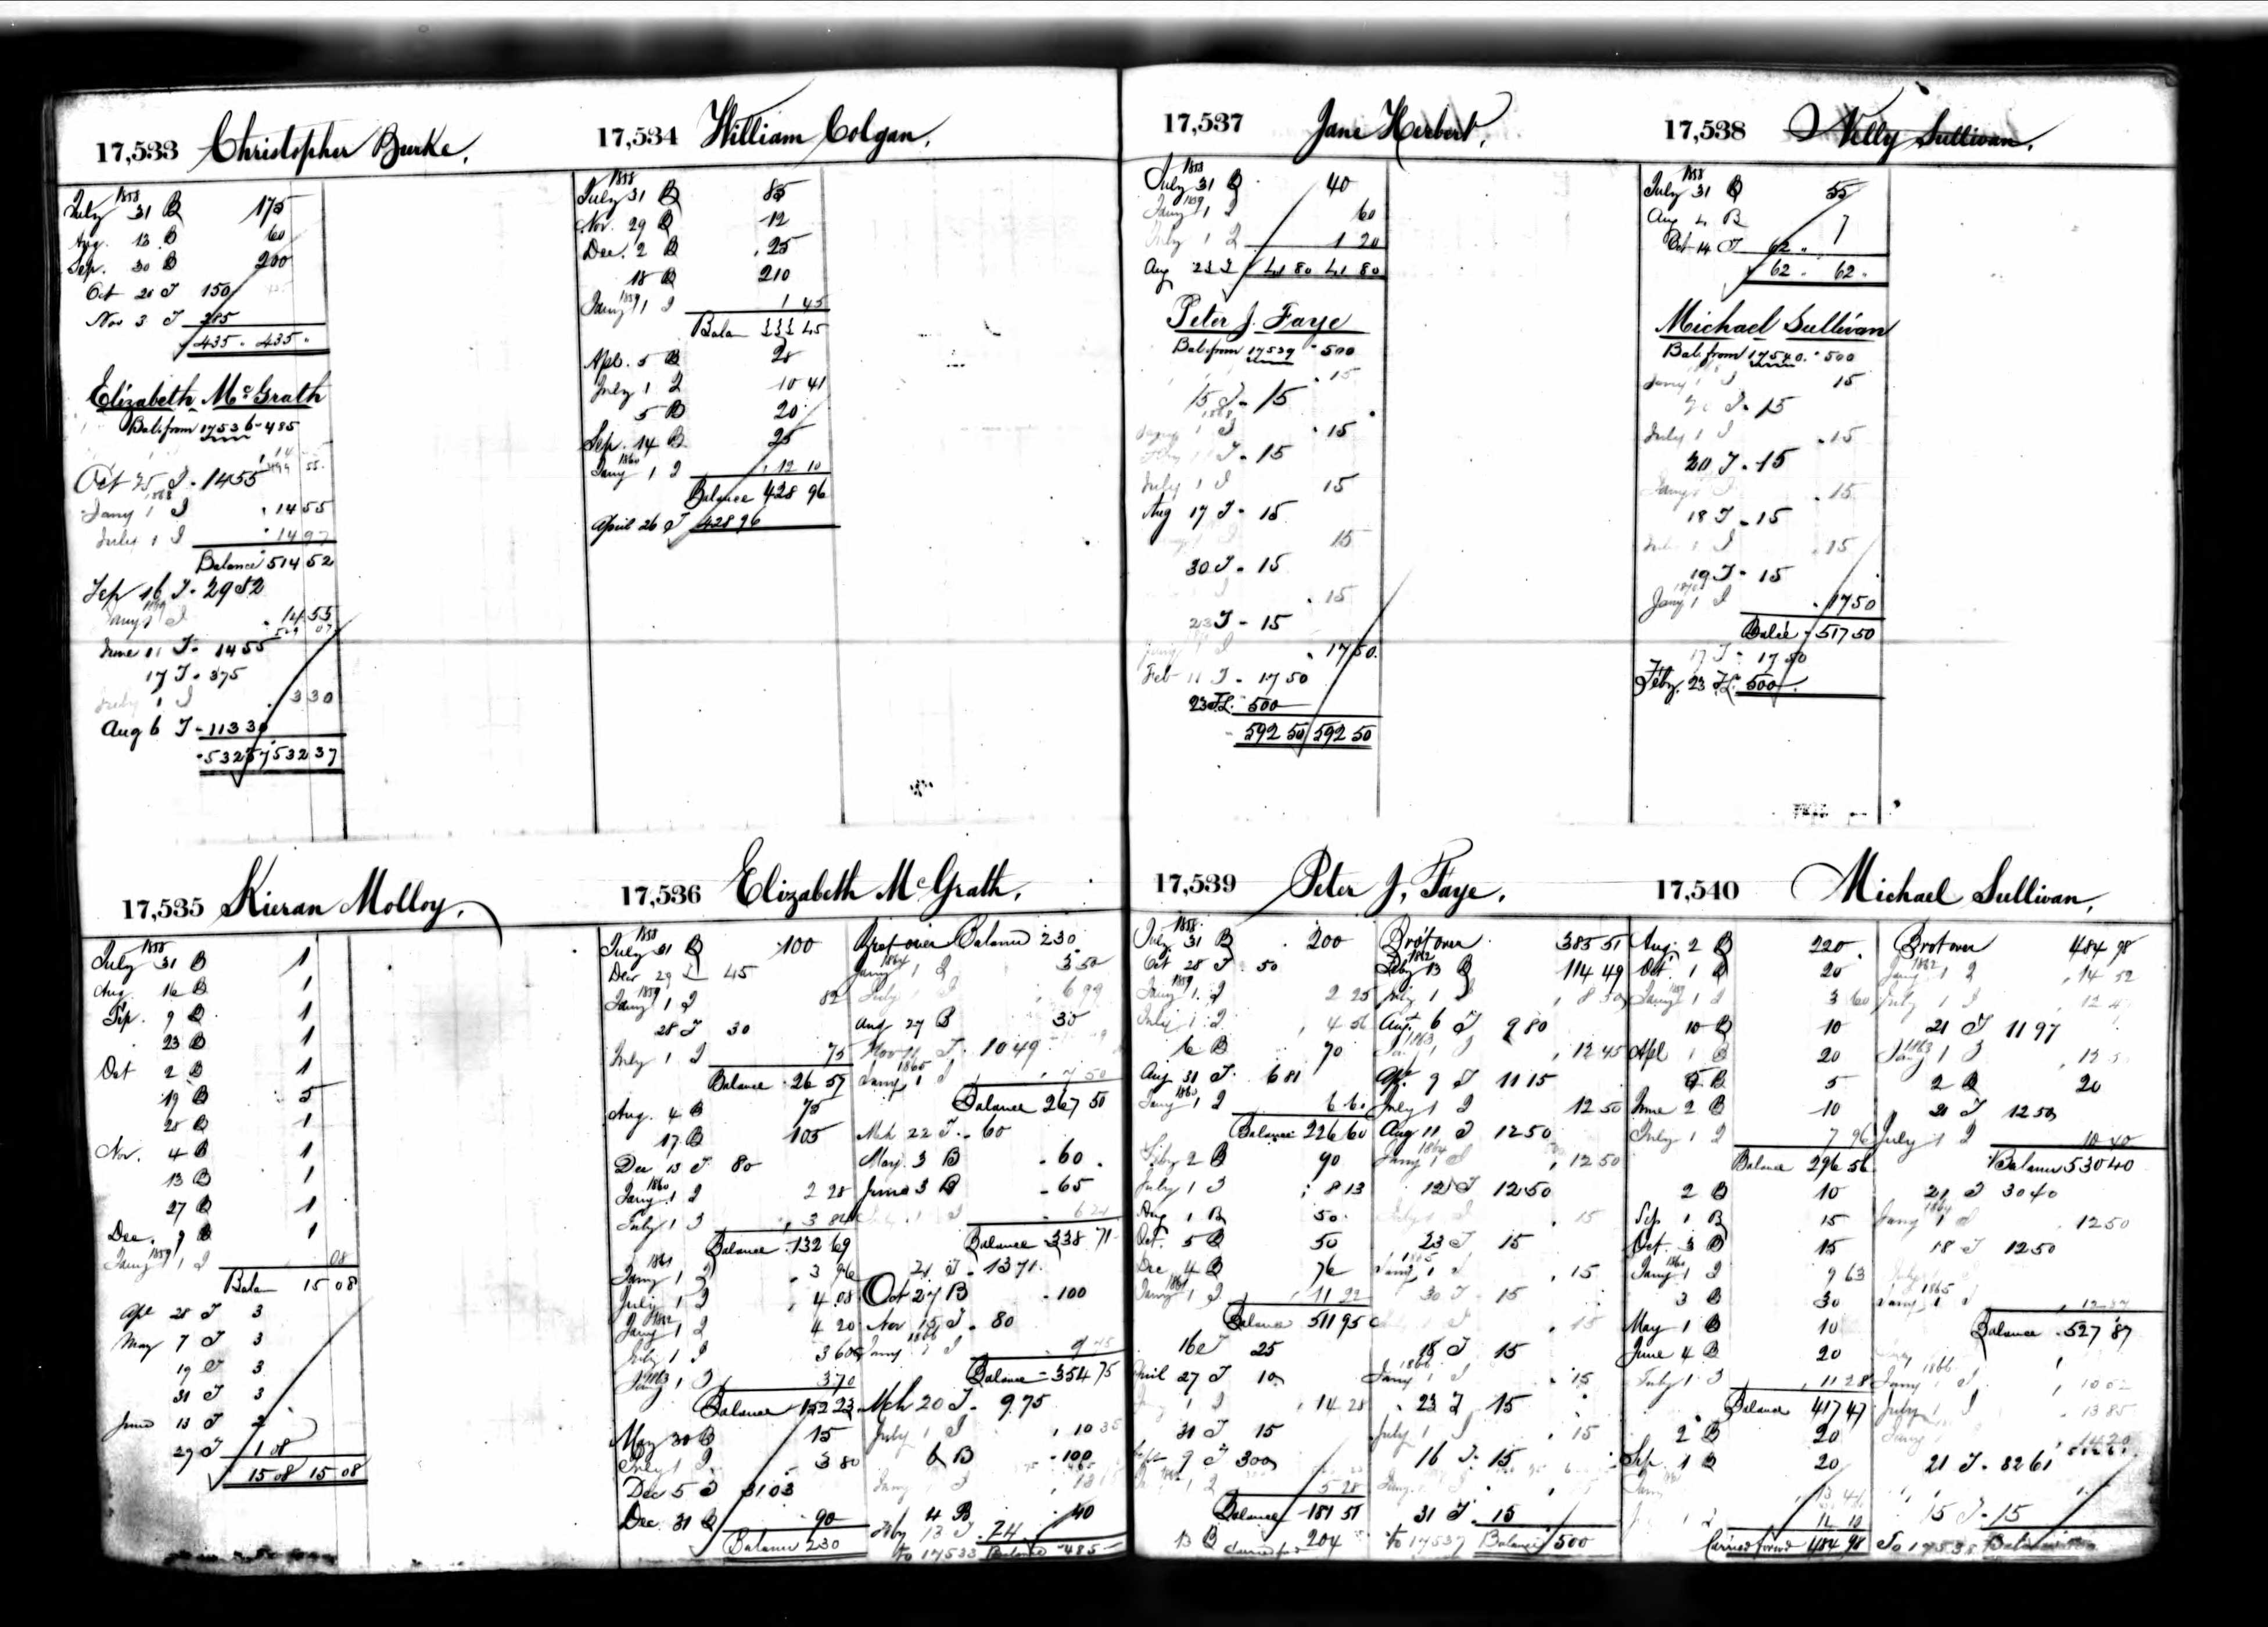 17,533 Christopher Burke.
1858
July 31 B 175
Aug. 13 B 60
Sep. 30 B 200
Oct 21 T 150
Nov 3 T 285
435 . 435 .
Elizabeth McGrath
Bal. from 17536 - 485
Oct 25 T - 1455
1868
Jany 1 I 14 55
July 1 I 14 97
Balance 514 52
Sep 16 T - 29 52
Jany 1 I 14 55
June 11 T - 14 55
17 T - 375
July 1 I 3 30
Aug 6 T - 113 30
532 37 532 37
17,534 William Colgan.
1858
July 31 B 85
Nov. 29 B 12
Dec. 2 B 25
18 B 210
1859
Jany 1 I 1 45
Balan 333 45
Apl. 5 B 28
July 1 I 10 41
5 B 20
Sep. 14 B 25
1860
Jany 1 I 12 10
Balance 428 96
April 26 T 428 96
17,535 Kieran Molloy.
1858
July 31 B 1
Aug. 16 B 1
Sep. 9 B 1
23 B 1
Oct 2 B 1
19 B 5
25 B 1
Nov. 4 B 1
13 B 1
27 B 1
Dec. 9 B 1
1859
Jany 1 I 08
Balan 15 08
Apl 28 T 3
May 7 T 3
19 T 3
31 T 3
June 13 T 2
29 T 1 08
15 08 15 08
17,536 Elizabeth McGrath.
1858
July 31 B 100
Dec 29 T 45
1859
Jany 1 I 82
28 T 30
July 1 I 75
Balance 26 57
Aug. 4 B 75
17 B 105
Dec 13 T 80
1860
Jany 1 I 2 28
July 1 I 3 84
Balance 132 69
1861
Jany 1 I 3 96
July 1 I 4 08
1862
Jany 1 I 4 20
July 1 I 3 60
1863
Jany 1 I 3 70
Balance 152 23
May 30 B 15
July 1 I 3 80
Dec 5 T 31 03
Dec. 31 B 90
Balance 230
Brot over Balance 230
1864
Jany 1 I 3 50
July 1 I 6 99
Aug 27 B 30
Nov 11 T 10 49
1865
Jany 1 I 7 50
Balance 267 50
Mch 22 T - 60
May 3 B - 60
June 3 B - 65
July 1 I 6 21
Balance 338 71
21 T - 13 71
Oct 27 B - 100
Nov 15 T - 80
1866
Jany 1 I 9 75
Balance - 354 75
Mch 20 T - 9.75
July 1 I 10 35
6 B - 100
Jany 1 I
4 B 40
Feby 13 T - 24
To 17533 Balance - 485
17,537 Jane Herbert.
1858
July 31 B 40
1859
Jany 1 I 60
July 1 I 1 20
Aug 23 T 41 80 41 80
Peter J. Faye
Bal. from 17539 - 500
15
15 T - 15
1868
Jany 1 I 15
T - 15
July 1 I 15
Aug 17 T - 15
15
30 T - 15
15
23 T - 15
Jany 1 I 17 50
Feb 11 T - 17 50
23 TL 500
592 50 592 50
17,538 Nelly Sullivan.
1858
July 31 B 55
Aug 4 B 7
Oct 14 T 62 .
62 . 62 .
Michael Sullivan
Bal. from 17540 - 500
Jany 1 I 15
T - 15
July 1 I 15
20 T - 15
Jany 1 I 15
18 T - 15
July 1 I 15
19 T - 15
1870
Jany 1 I 17 50
Balce - 517 50
17 T - 17 50
Feby. 23 TL 500
17,539 Peter J. Faye.
1858
July 31 B 200
Oct 28 T 50
1859
Jany 1 I 2 25
July 1 I 4 56
6 B 70
Aug 31 T 6 81
1860
Jany 1 I 6 60
Balance 226 60
Feby 2 B 90
July 1 I 8 13
Aug 1 B 50
Oct. 5 B 50
Dec 4 B 76
1861
Jany 1 I 11 22
Balance 511 95
16 T 25
April 27 T 10
1 I 14 28
31 T 15
Sept 9 T 300
1862
1 I 5 28
Balance 181 51
13 B Carried for 204
Brot over 385 51
1862
Feby 13 B 114 49
July 1 I 8 30
Aug. 6 T 9 80
1863
Jany 1 I 12 45
Apl. 9 T 11 15
July 1 I 12 50
Aug 11 T 12 50
1864
Jany 1 I 12 50
12 T 12 50
July 1 I 15
23 T 15
1865
Jany 1 I 15
30 T 15
1 I 15
18 T 15
1866
Jany 1 I 15
23 T 15
July 1 I 15
16 T - 15
31 T - 15
To 17537 Balance 500
17,540 Michael Sullivan.
Aug. 2 B 220
Oct. 1 B 20
1859
Jany 1 I 3 60
10 B 10
Apl 1 B 20
5 B 5
June 2 B 10
July 1 I 7 96
Balance 296 56
2 B 10
Sep 1 B 15
Oct. 3 B 15
1860
Jany 1 I 9 63
3 B 30
May 1 B 10
June 4 B 20
July 1 I 11 28
Balance 417 47
2 B 20
Sep 1 B 20
Carried forwd 484 98
Brot over 484 98
1862
Jany 1 I 14 52
July 1 I
21 T 11 97
1863
Jany 1 I
2 B 20
21 T 12 50
July 1 I 10 40
Balance 530 40
21 T 30 40
1864
Jany 1 I 12 50
18 T 12 50
1865
Jany 1 I
Balance 527 87
1866
Jany 1 I
July 1 I 13 85
14 20
21 T - 82 61
15 T - 15